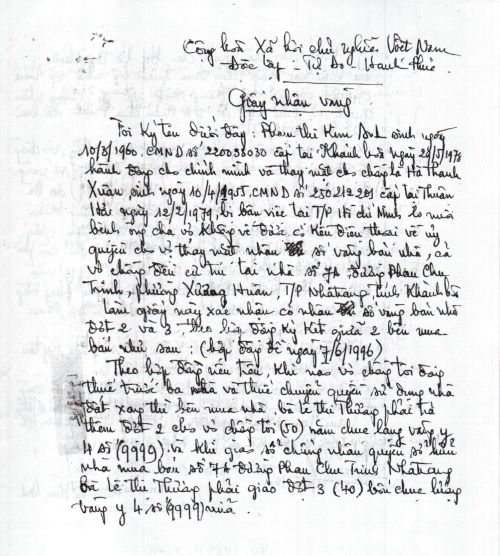 Cộng hoà Xã hội chủ nghĩa Việt Nam
Độc lập - Tự Do - Hạnh Phúc
Giấy nhận vàng
Tôi Ký tên dưới đây: Phạm thị Kim Anh sinh ngày
10/3/1960, CMND số 220058030 cấp tại Khánh hoà ngày 22/5/1978
hành động cho chính mình và thay mặt cho chồng là Hà Thanh
Xuân sinh ngày 10/4/1955, CMND số 250212201 cấp tại Thuận
Hải ngày 12/2/1979, bị bận việc tại T/P Hồ chí Minh lo nuôi
bệnh ông cha vợ không về được có kêu điện thoại về uỷ
quyền cho vợ thay mặt nhận số vàng bán nhà, cả
vợ chồng đều cư trú tại nhà số 7A đường Phan Chu
Trinh, phường Xương Huân, T/P Nhatrang, tỉnh Khánh hoà
Làm giấy này xác nhận có nhận số vàng bán nhà
đợt 2 và 3 theo hợp đồng ký kết giữa 2 bên mua
bán như sau: (hợp đồng đề ngày 7/6/1996)
Theo hợp đồng nêu trên, khi nào vợ chồng tôi đóng
thuế trước bạ nhà và thuế chuyển quyền sử dụng nhà
đất xong thì bên mua nhà, bà lê thị Thưởng phải trả
thêm đợt 2 cho vợ chồng tôi (50) năm chục lạng vàng y
4 số (9999) và khi giao số chứng nhận quyền sở hữu
nhà mua bán số 7A đường Phan Chu Trinh Nhatrang
bà lê thị Thưởng phải giao đợt 3 (40) bốn chục lượng
vàng y 4 số (9999) nữa.